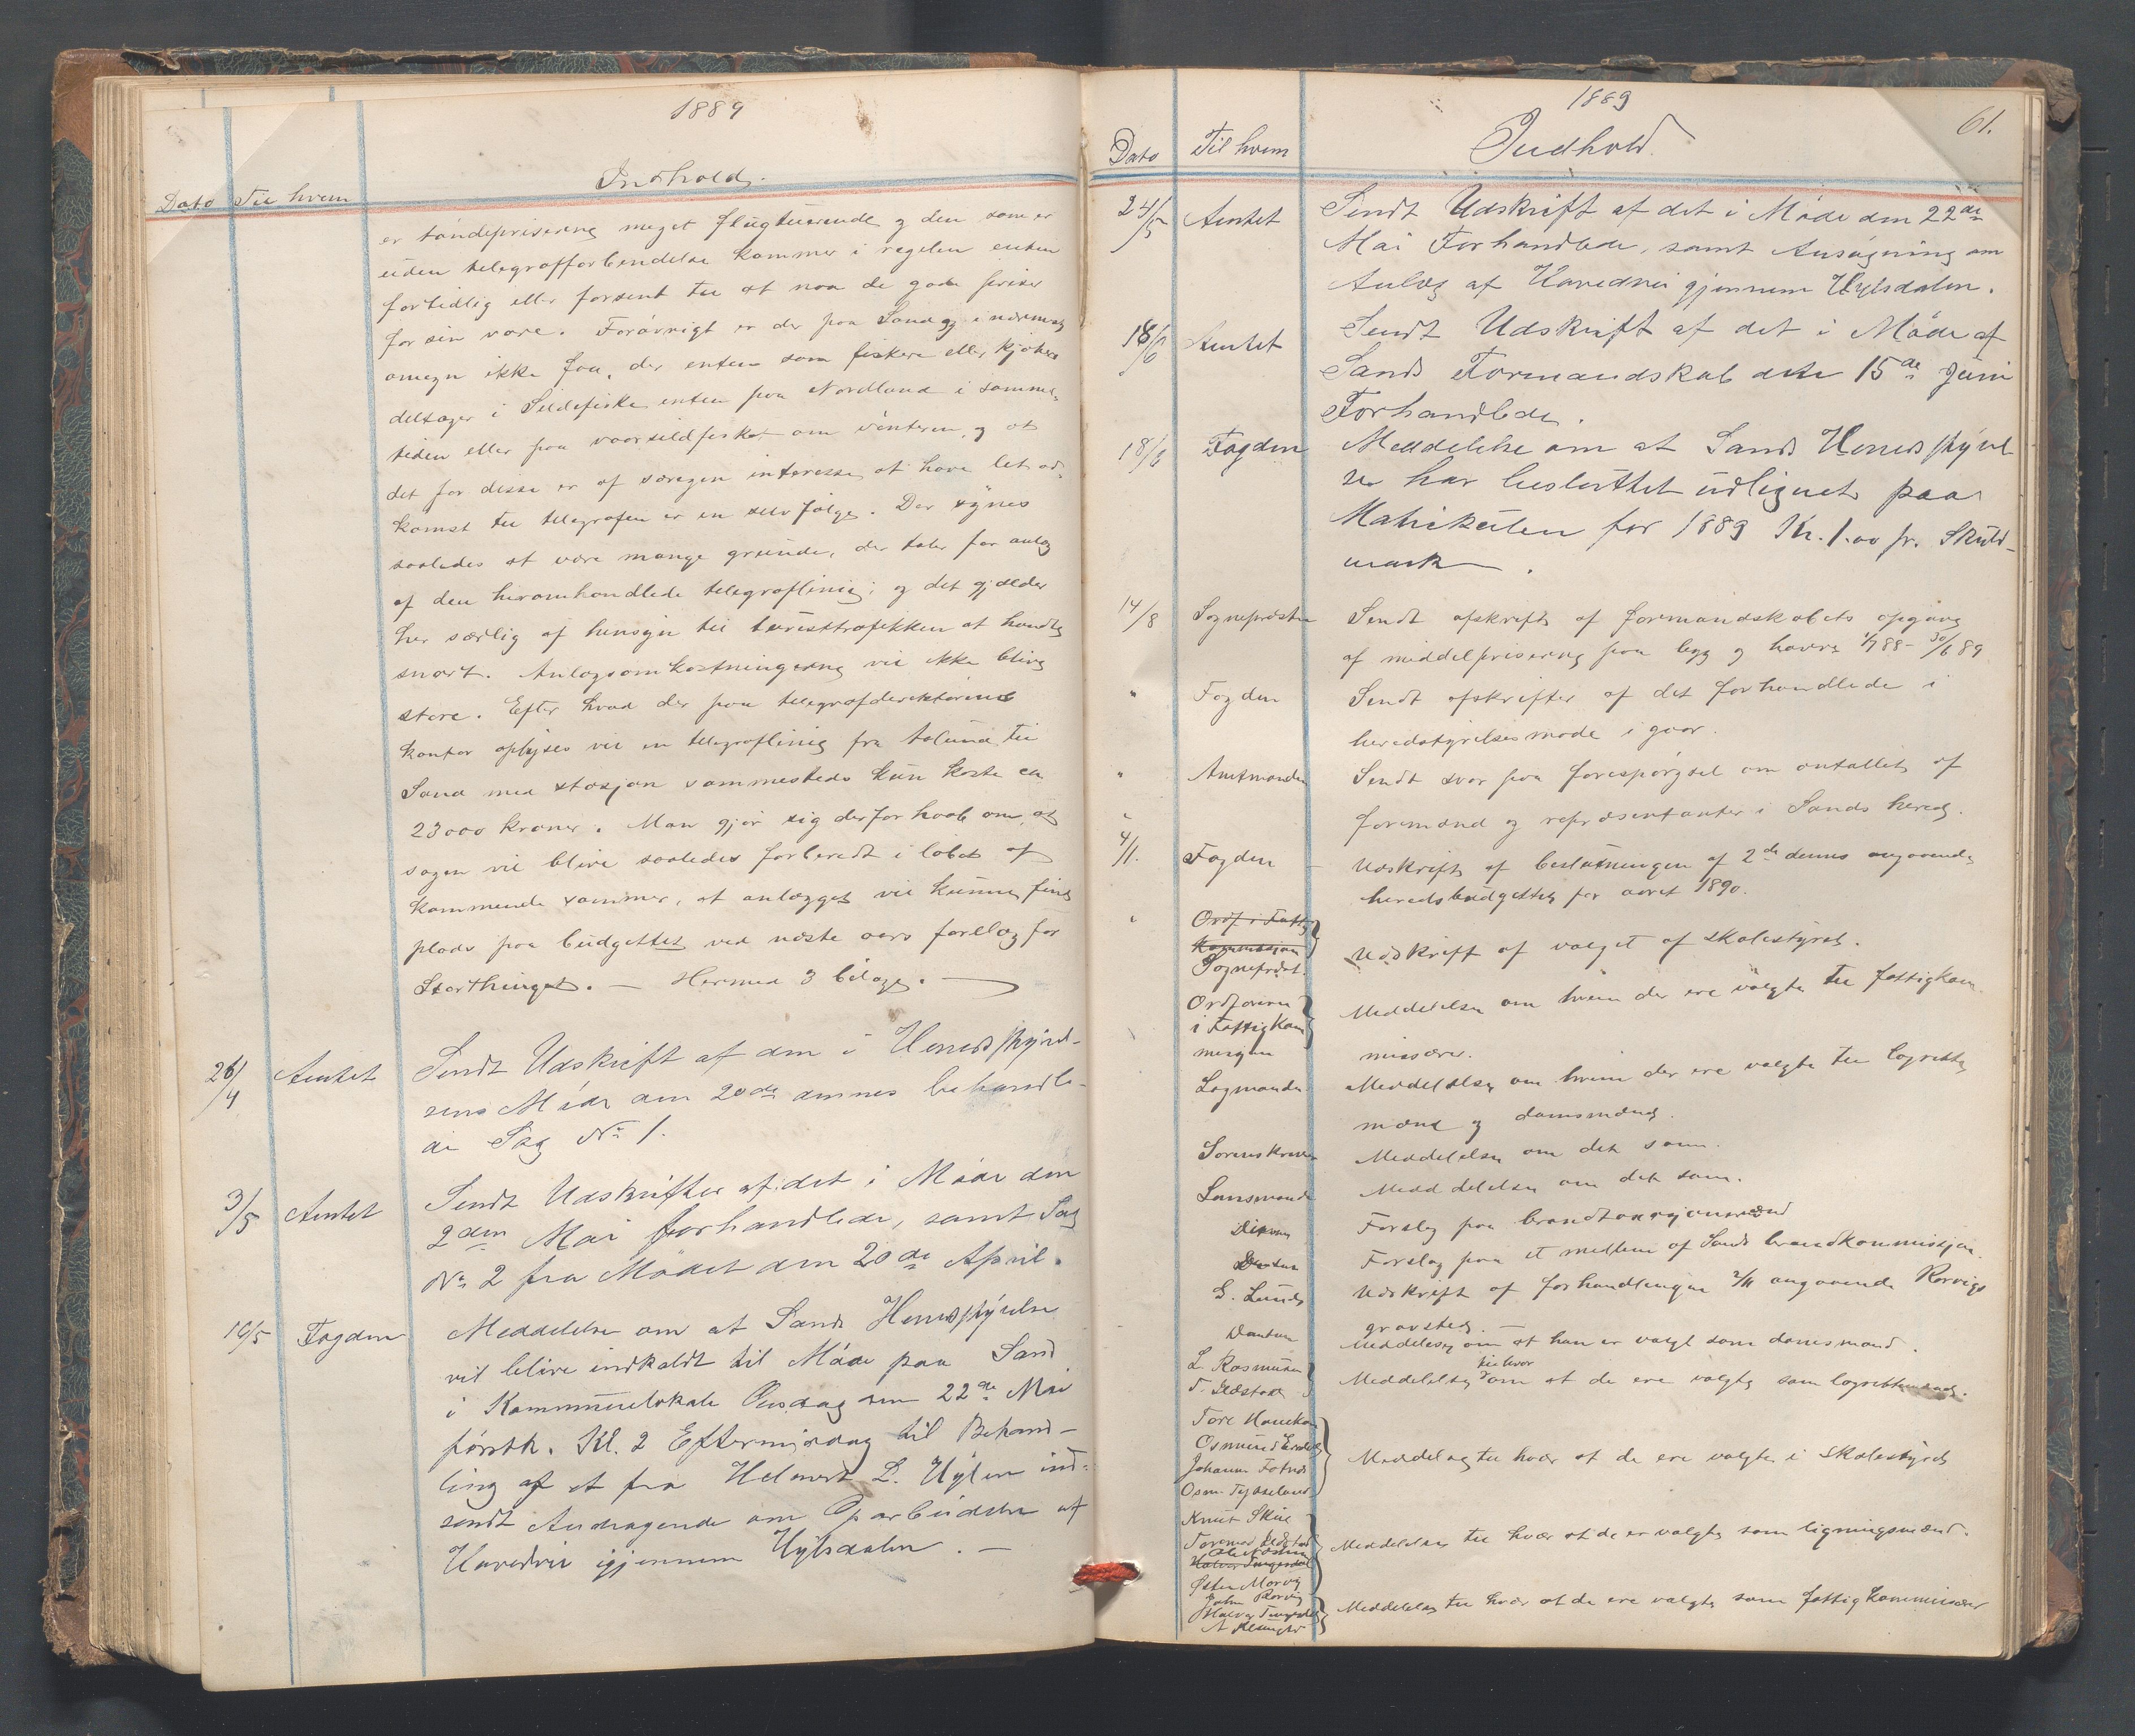 1889
Dato Til hvem Indhold.
er töndepriserne meget flugtuerende og den som er
uden telegrafforbendelse kommer i regelen enten
fortidlig eller forsent til at naa de gode priser
for sin vare. Forövrigt er der paa Sand og i nærmeste
omegn ikke faa, der enten som fiskere eller kjöbere
deltager i Sildefiske enten paa Nordland i sommer-
tiden eller paa vaarsildfisket om vinteren, og at
det for disse er af særegen interesse at have let ad-
komst til telegrafen er en selvfölge. Der synes
saaledes at være mange grunde, der taler for anlæg
af den heromhandlede telegraflinie; og det gjælder
her særlig af hensyn til turisttrafikken at handle
snart. Anlægsomkostningerne vil ikke blive
store. Efter hvad der paa telegrafdirektörens
kontor oplyses vil en telegraflinie fra til
Sand med stasjon sammesteds kun koste ca
23000 kroner. Man gjör sig derfor haab om, at
sagen vil blive saaledes forberedt i löbet af
kommende sommer, at anlægget vil kunne finde
plads paa budgettet ved næste aars forelæg for
Storthinget. — Hermed 3 bilage. —
26/4 Amtet Sendt Udskrift af den i Heredsstyrel-
sens Möde den 20de dennes behandle-
de Sag No 1.
3/5 Amtet Sendt Udskrifter af det i Möde den
2den Mai forhandlede, samt Sag
No 2 fra Mödet den 20de April.
16/5 Fogden Meddelelse om at Sands Heredsstyrelse
vil blive indkaldt til Möde paa Sand
i Kommunelokale Onsdag den 22de Mai
förstk. Kl. 2 Eftermiddag til Behand-
ling af et fra Helmert L. Hylen ind-
sendt Andragende om Oparbeidelse af
Hovedvei igjennem Hylsdalen. —
1889
61.
Dato Til hvem Indhold.
24/5 Amtet Sendt Udskrift af det i Möde den 22de
Mai Forhandlede, samt Ansögning om
Anlæg af Hovedvei gjennem Hylsdalen.
18/6 Amtet Sendt Udskrift af det i Möde af
Sands Formandskab den 15de Juni
Forhandlede.
18/6 Fogden Meddelelse om at Sands Heredsstyrel
se har besluttet udlignet paa
Matrikulen for 1889 Kr. 1.00 pr. Skyld-
mark.
14/8 Sogneprösten Sendt afskrift af formandskabets opgave
af middelpriserne paa byg og havre 1/7 88 - 30/6 89
" Fogden Sendt afskrifter af det forhandlede i
heredstyrelsesmöde i gaar.
" Amtmanden Sendt svar paa forespörgsel om antallet af
" formænd og repræsentanter i Sands hered.
4/11. Fogden — Udskrift af beslutningen af 2de dennes angaaende
heredsbudgettet for aaret 1890.
" Ordf. i Fattig
kommissjon
Sogneprest. Udskrift af valget af skolestyret.
Ordföreren
i Fattigkom Meddelelse om hvem der ere valgte til fattigkom-
misjon missærer.
Lagmanden Meddelelse om hvem der ere valgte til lagrette
mænd og domsmænd.
Sorenskriver Meddelelse om det samme.
Lensmand Meddelelse om det samme.
Forslag paa brandtaxsjonsmænd
Forslag paa et medlem af Sands brandkommissjon.
Udskrift af forhandlingen 2/11 angaaende Rorvigs
gravsted. —
Meddelelse om at han er valgt som domsmand.
L. Rasmusen til hver
Meddelelse om at de ere valgte som lagrettemænd.
Tore
Osmund
Johannes
Osm. Tjösseland Meddelelse til hver at de ere valgte i skolestyret
Knut Skue
Meddelelse til hver at de er valgte som ligningsmænd.
John Rorvig
Halvor Tengesdal Meddelelse til hver at de ere valgte som fattigkommissærer